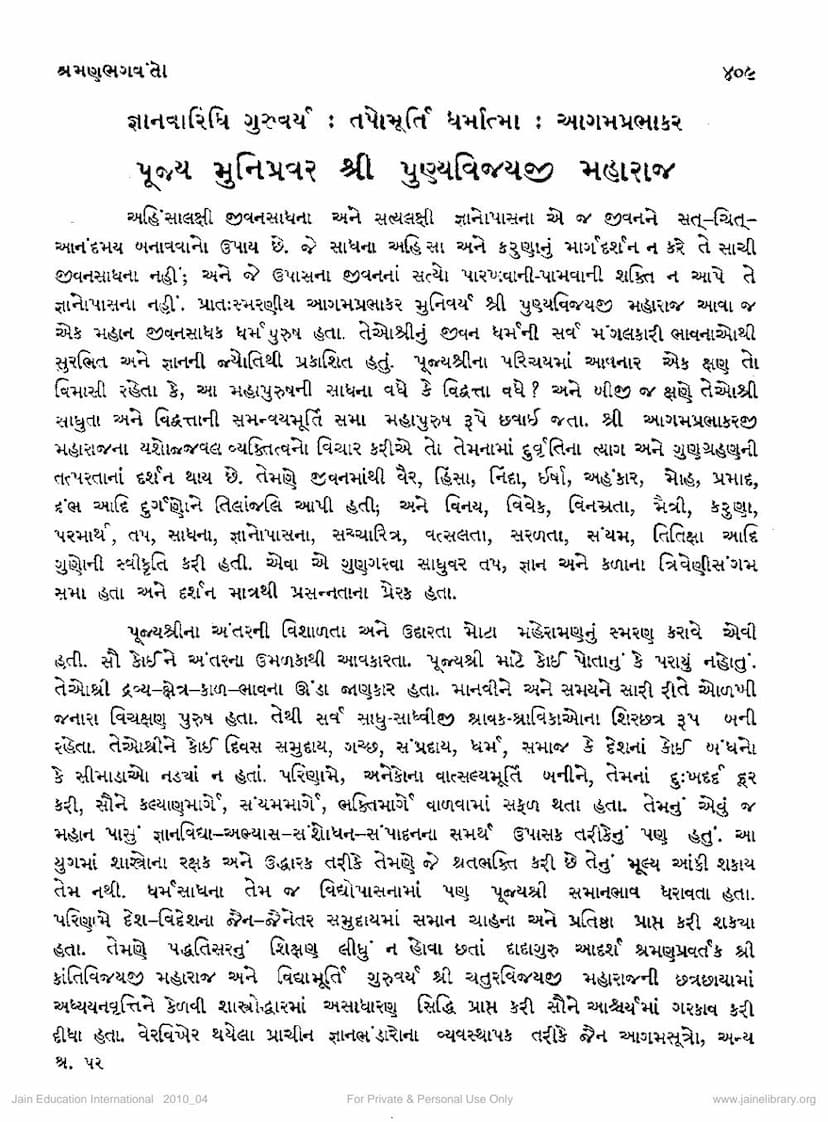 શ્રમણભગવંતો
૪૦૯
જ્ઞાનવારિધિ ગુરુવર્ય : તપોમૂર્તિ ધર્માત્મા : આગમપ્રભાકર
પૂજ્ય મુનિપ્રવર શ્રી પુણ્યવિજયજી મહારાજ
અહિંસાલક્ષી જીવનસાધના અને સત્યલક્ષી જ્ઞાનોપાસના એ જ જીવનને સત્–ચિત્–
આનંદમય બનાવવાનો ઉપાય છે. જે સાધના અહિંસા અને કરુણાનું માર્ગદર્શન ન કરે તે સાચી
જીવનસાધના નહીં; અને જે ઉપાસના જીવનનાં સત્યો પારખવાની-પામવાની શક્તિ ન આપે તે
જ્ઞાનોપાસના નહીં. પ્રાતઃસ્મરણીય આગમપ્રભાકર મુનિવર્ય શ્રી પુણ્યવિજયજી મહારાજ આવા જ
એક મહાન જીવનસાધક ધર્મપુરુષ હતા. તેઓશ્રીનું જીવન ધર્મની સર્વ મંગલકારી ભાવનાઓથી
સુરભિત અને જ્ઞાનની જ્યોતિથી પ્રકાશિત હતું. પૂજ્યશ્રીના પરિચયમાં આવનાર એક ક્ષણ તો
વિમાસી રહેતા કે, આ મહાપુરુષની સાધના વધે કે વિદ્વત્તા વધે? અને બીજી જ ક્ષણે તેઓશ્રી
સાધુતા અને વિદ્વત્તાની સમન્વયમૂર્તિ સમા મહાપુરુષ રૂપે છવાઈ જતા. શ્રી આગમપ્રભાકરજી
મહારાજના યશોજ્જવલ વ્યક્તિત્વનો વિચાર કરીએ તો તેમનામાં દુર્વૃત્તિના ત્યાગ અને ગુણગ્રહણની
તત્પરતાનાં દર્શન થાય છે. તેમણે જીવનમાંથી વૈર, હિંસા, નિંદા, ઈર્ષા, અહંકાર, મોહ, પ્રમાદ,
દંભ આદિ દુર્ગુણોને તિલાંજલિ આપી હતી; અને વિનય, વિવેક, વિનમ્રતા, મૈત્રી, કરુણા,
પરમાર્થ, તપ, સાધના, જ્ઞાનોપાસના, સચ્ચારિત્ર, વત્સલતા, સરળતા, સંયમ, તિતિક્ષા આદિ
ગુણોની સ્વીકૃતિ કરી હતી. એવા એ ગુણગરવા સાધુવર તપ, જ્ઞાન અને કળાના ત્રિવેણીસંગમ
સમા હતા અને દર્શન માત્રથી પ્રસન્નતાના પ્રેરક હતા.
પૂજ્યશ્રીના અંતરની વિશાળતા અને ઉદારતા મોટા મહેરામણનું સ્મરણ કરાવે એવી
હતી. સૌ કોઈને અંતરના ઉમળકાથી આવકારતા. પૂજ્યશ્રી માટે કોઈ પોતાનું કે પરાયું નહોતું.
તેઓશ્રી દ્રવ્ય–ક્ષેત્ર–કાળ–ભાવના ઊંડા જાણકાર હતા. માનવીને અને સમયને સારી રીતે ઓળખી
જનારા વિચક્ષણ પુરુષ હતા. તેથી સર્વ સાધુ-સાધ્વીજી શ્રાવક-શ્રાવિકાઓના શિરછત્ર રૂપ બની
રહેતા. તેઓશ્રીને કોઈ દિવસ સમુદાય, ગચ્છ, સંપ્રદાય, ધર્મ, સમાજ કે દેશનાં કોઈ બંધનો
કે સીમાડાઓ નડ્યાં ન હતાં. પરિણામે, અનેકોના વાત્સલ્યમૂર્તિ બનીને, તેમનાં દુઃખદર્દ દૂર
કરી, સૌને કલ્યાણમાર્ગે, સંયમમાર્ગે, ભક્તિમાર્ગે વાળવામાં સફળ થતા હતા. તેમનું એવું જ
મહાન પાસું જ્ઞાનવિદ્યા–અભ્યાસ–સંશોધન–સંપાદનના સમર્થ ઉપાસક તરીકેનું પણ હતું. આ
યુગમાં શાસ્ત્રોના રક્ષક અને ઉદ્ધારક તરીકે તેમણે જે શ્રતભક્તિ કરી છે તેનું મૂલ્ય આંકી શકાય
તેમ નથી. ધર્મસાધના તેમ જ વિદ્યોપાસનામાં પણ પૂજ્યશ્રી સમાનભાવ ધરાવતા હતા.
પરિણામે દેશ–વિદેશના જૈન–જૈનેતર સમુદાયમાં સમાન ચાહના અને પ્રતિષ્ઠા પ્રાપ્ત કરી શક્યા
હતા. તેમણે પદ્ધતિસરનું શિક્ષણ લીધું ન હોવા છતાં દાદાગુરુ આદર્શ શ્રમણપ્રવર્તક શ્રી
કાંતિવિજયજી મહારાજ અને વિદ્યામૂર્તિ ગુરુવર્ય શ્રી ચતુરવિજયજી મહારાજની છત્રછાયામાં
અધ્યયનવૃત્તિને કેળવી શાસ્ત્રોદ્ધારમાં અસાધારણ સિદ્ધિ પ્રાપ્ત કરી સૌને આશ્ચર્યમાં ગરકાવ કરી
દીધા હતા. વેરવિખેર થયેલા પ્રાચીન જ્ઞાનભંડારોના વ્યવસ્થાપક તરીકે જૈન આગમસૂત્રો, અન્ય
શ્ર. ૫૨
Jain Education International 2010_04
For Private & Personal Use Only
www.jainelibrary.org